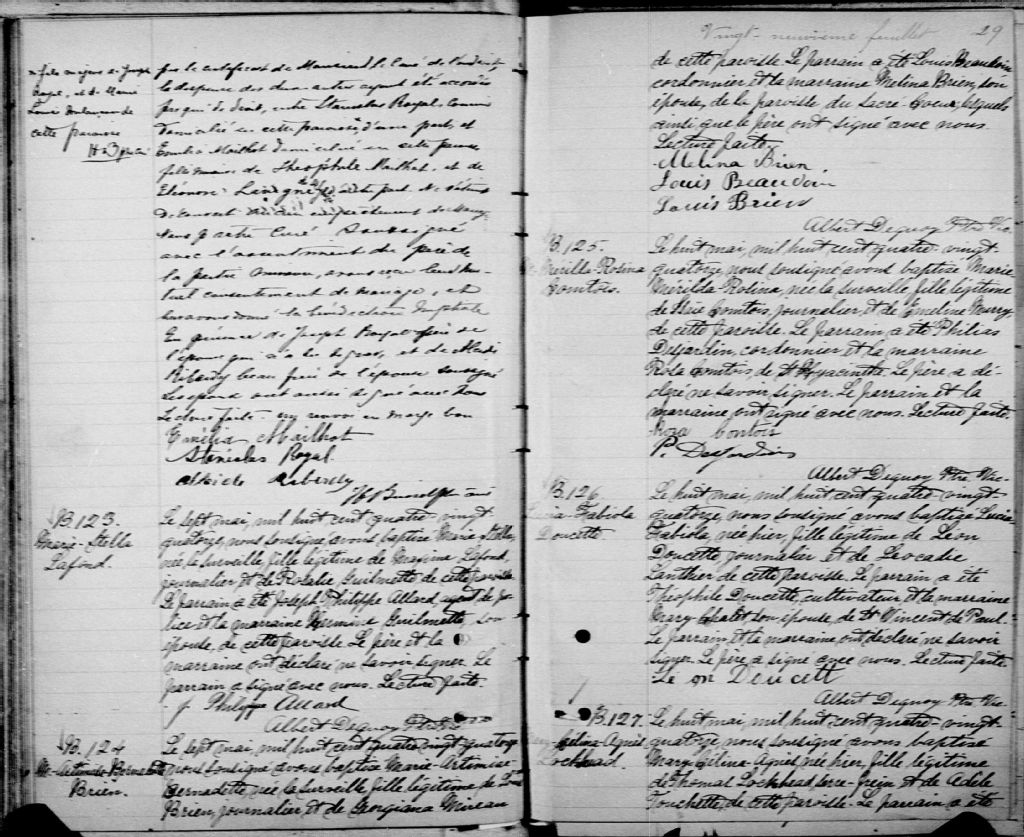 x fils majeur de Joseph
Royal, et de Marie
Louise de
cette paroisse
par le certificat de Monsieur l. Curé de l'endroit,
la dispense des deux autres ayant été accordée
par qui de droit, entre Stanislas Royal, Commis
domicilié en cette paroisse, d'une part, et
Emélia Mailhot domiciliée en cette paroisse
fille mineure de Théophile Mailhot, et de
Eléonore d'autre part. Ne
découvert empêchement de mariage
Nous Prêtre Curé Soussigné
avec l'assentiment du père de
la partie mineure, avons reçu leur mu-
tuel consentement de mariage, et
leur avons donné la bénédiction Nuptiale
En présence de Joseph Royal père de
l'époux qui n'a su signer, et de Alcide
Riberdy beau frère de l'épouse soussigné
Les époux ont aussi signé avec nous
Lecture faite un renvoi en marge bon
Emélia Mailhot
Stanislas Royal
Alcide Riberdy
B. 123.
Marie-Stella
Lafond.
Le sept mai, mil huit cent quatre-vingt
quatorze, nous soussigné avons baptisé Marie Stella,
née la surveille, fille légitime de Maxime Lafond,
journalier et de Rosalie Guilmette de cette paroisse
Le parrain a été Joseph Philippe Allard, agent de po-
lice et la marraine Hermine Guilmette, son
épouse, de cette paroisse. Le père et la
marraine ont déclaré ne savoir signer. Le
parrain a signé avec nous. Lecture faite.
J. Philippe Allard
Albert Dequoy Ptre Vic
B. 124
Me-Artimise-Bernadette
Brien.
Le sept mai, mil huit cent quatre vingt quatorze
nous soussigné avons baptisé Marie-Artimise
Bernadette, née la surveille, fille légitime de Louis
Brien, journalier et de Georgiana Mineau
Vingt-neuvième feuillet 29
de cette paroisse. Le parrain a été Louis Beaudoin
cordonnier et la marraine Melina Brien, son
épouse, de la paroisse du Sacré-Coeur, lesquels
ainsi que le père ont signé avec nous.
Lecture faite.
Melina Brien
Louis Beaudoin
Louis Brien
Albert Dequoy Ptre Vic.
B. 125.
M. Merilda-Rosina
Comtois.
Le huit mai, mil huit cent quatre-vingt
quatorze, nous soussigné avons baptisé Marie
Merilda-Rosina, née la surveille, fille légitime
de Isaïe Comtois, journalier, et de Emeline Murry,
de cette paroisse. Le parrain a été Philias
Desjardin, cordonnier et la marraine
Rosa Comtois, de St Hyacinthe. Le père a dé-
claré ne savoir signer. Le parrain et la
marraine ont signé avec nous. Lecture faite.
Rosa Contois
P. Desjardins
Albert Dequoy Ptre Vic.
B. 126.
Lucia-Fabiola
Doucette.
Le huit mai, mil huit cent quatre-vingt
quatorze, nous soussigné avons baptisé Lucia
Fabiola, née hier, fille légitime de Léon
Doucette, journalier et de Léocadie
Lanthier de cette paroisse. Le parrain a été
Théophile Doucette, cultivateur et la marraine
Mary Chalet son épouse, de St Vincent de Paul.
Le parrain, et la marraine ont déclaré ne savoir
signer. Le père a signé avec nous. Lecture faite.
Lé on Doucett
Albert Dequoy Ptre Vic.
B. 127.
Mary-Celina-Agnès
Lockhead.
Le huit mai, mil huit cent quatre-vingt
quatorze nous soussigné avons baptisé
Mary Celina-Agnès née hier, fille légitime
de Thomas Lockhead, serre-frein et de Adèle
Touchette, de cette paroisse. Le parrain a été